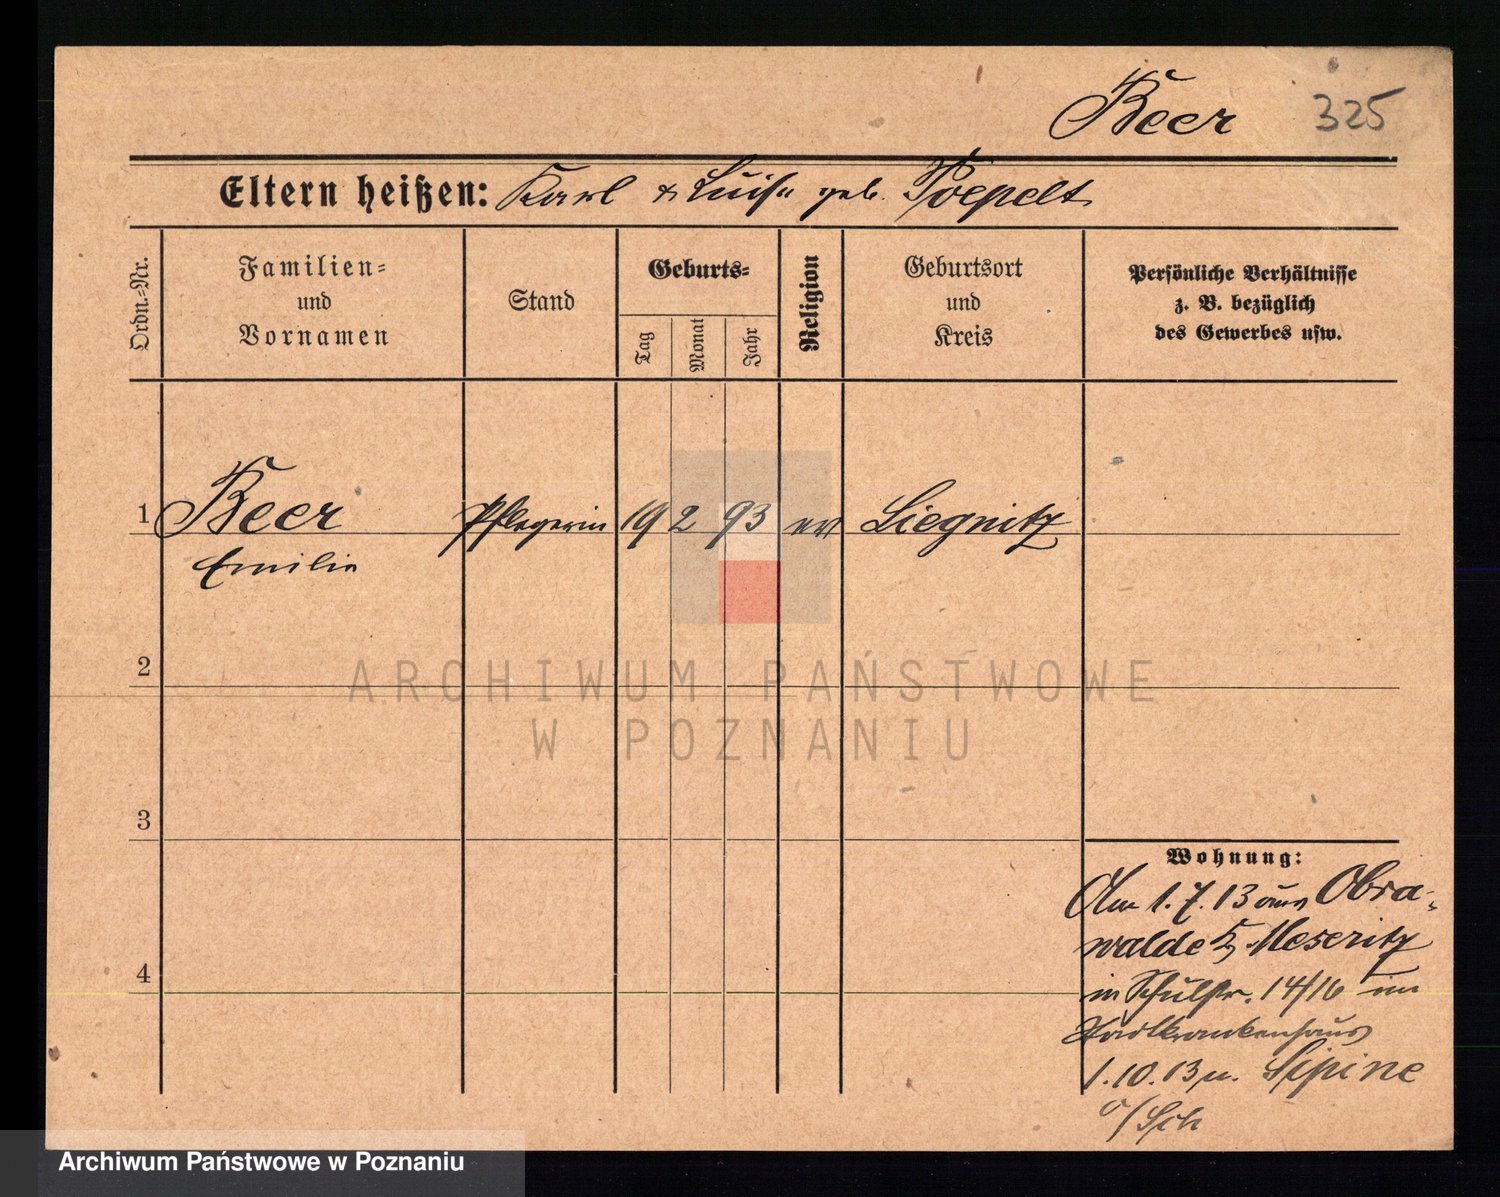 Beer 325
Eltern heißen: Karl & Luise geb. Poepelt
Ordn.-Nr.
Familien-
und
Vornamen
Stand
Geburts-
Tag
Monat
Jahr
Religion
Geburtsort
und
Kreis
Persönliche Verhältnisse
z. B. bezüglich
des Gewerbes usw.
1 Beer Pflegerin 19 2 93 ev Liegnitz
Emilie
2
ARCHIWUM PAŃSTWOWE
W POZNANIU
3
Wohnung:
Am 1.7.13 aus Obra-
walde Meseritz
4
in Schulstr. 14/16 im
Stadtkrankenhaus
1.10.13 n. Lipine
o/Sch
Archiwum Państwowe w Poznaniu